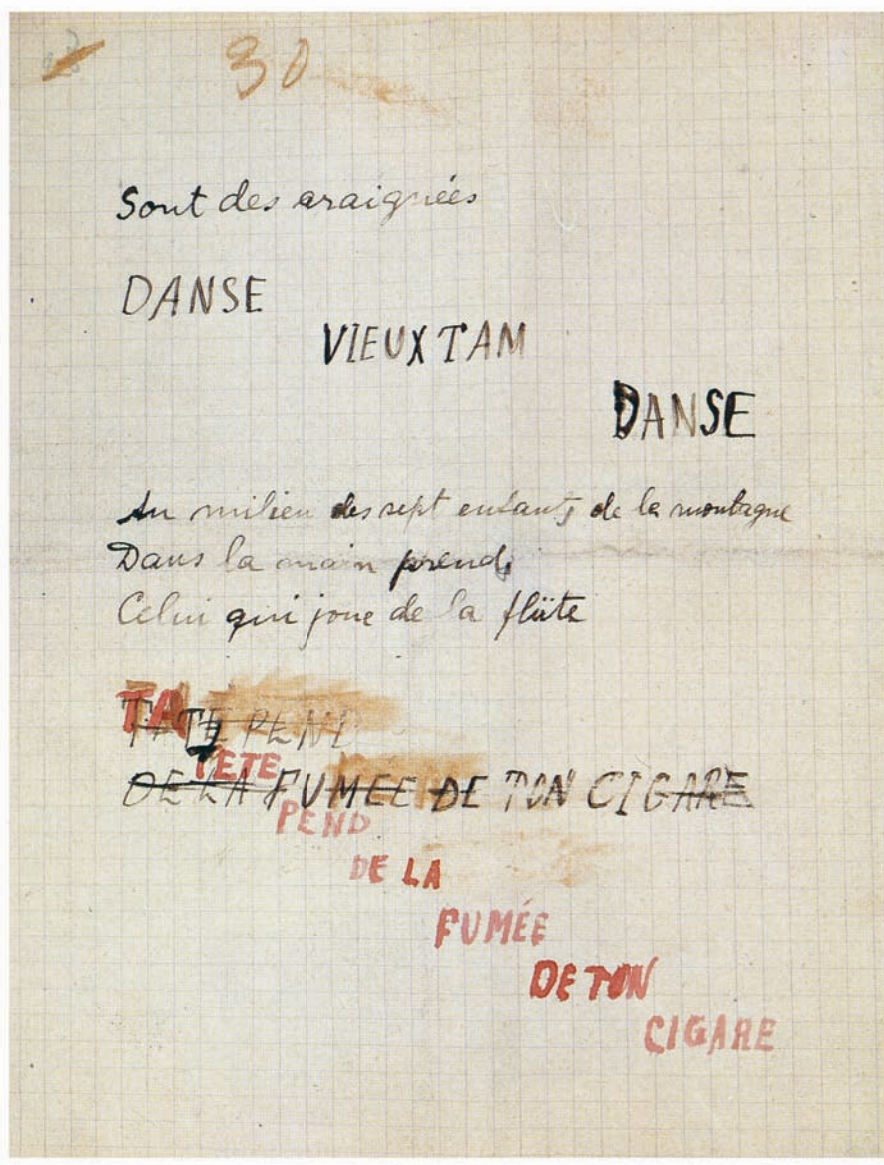 30
Sont des araignées
DANSE
VIEUX TAM
DANSE
Au milieu des sept enfants de la montagne
Dans la main prends
Celui qui joue de la flüte
TA TETE PEND
DE LA FUMEE DE TON CIGARE
TA
TETE
PEND
DE LA
FUMÉE
DE TON
CIGARE